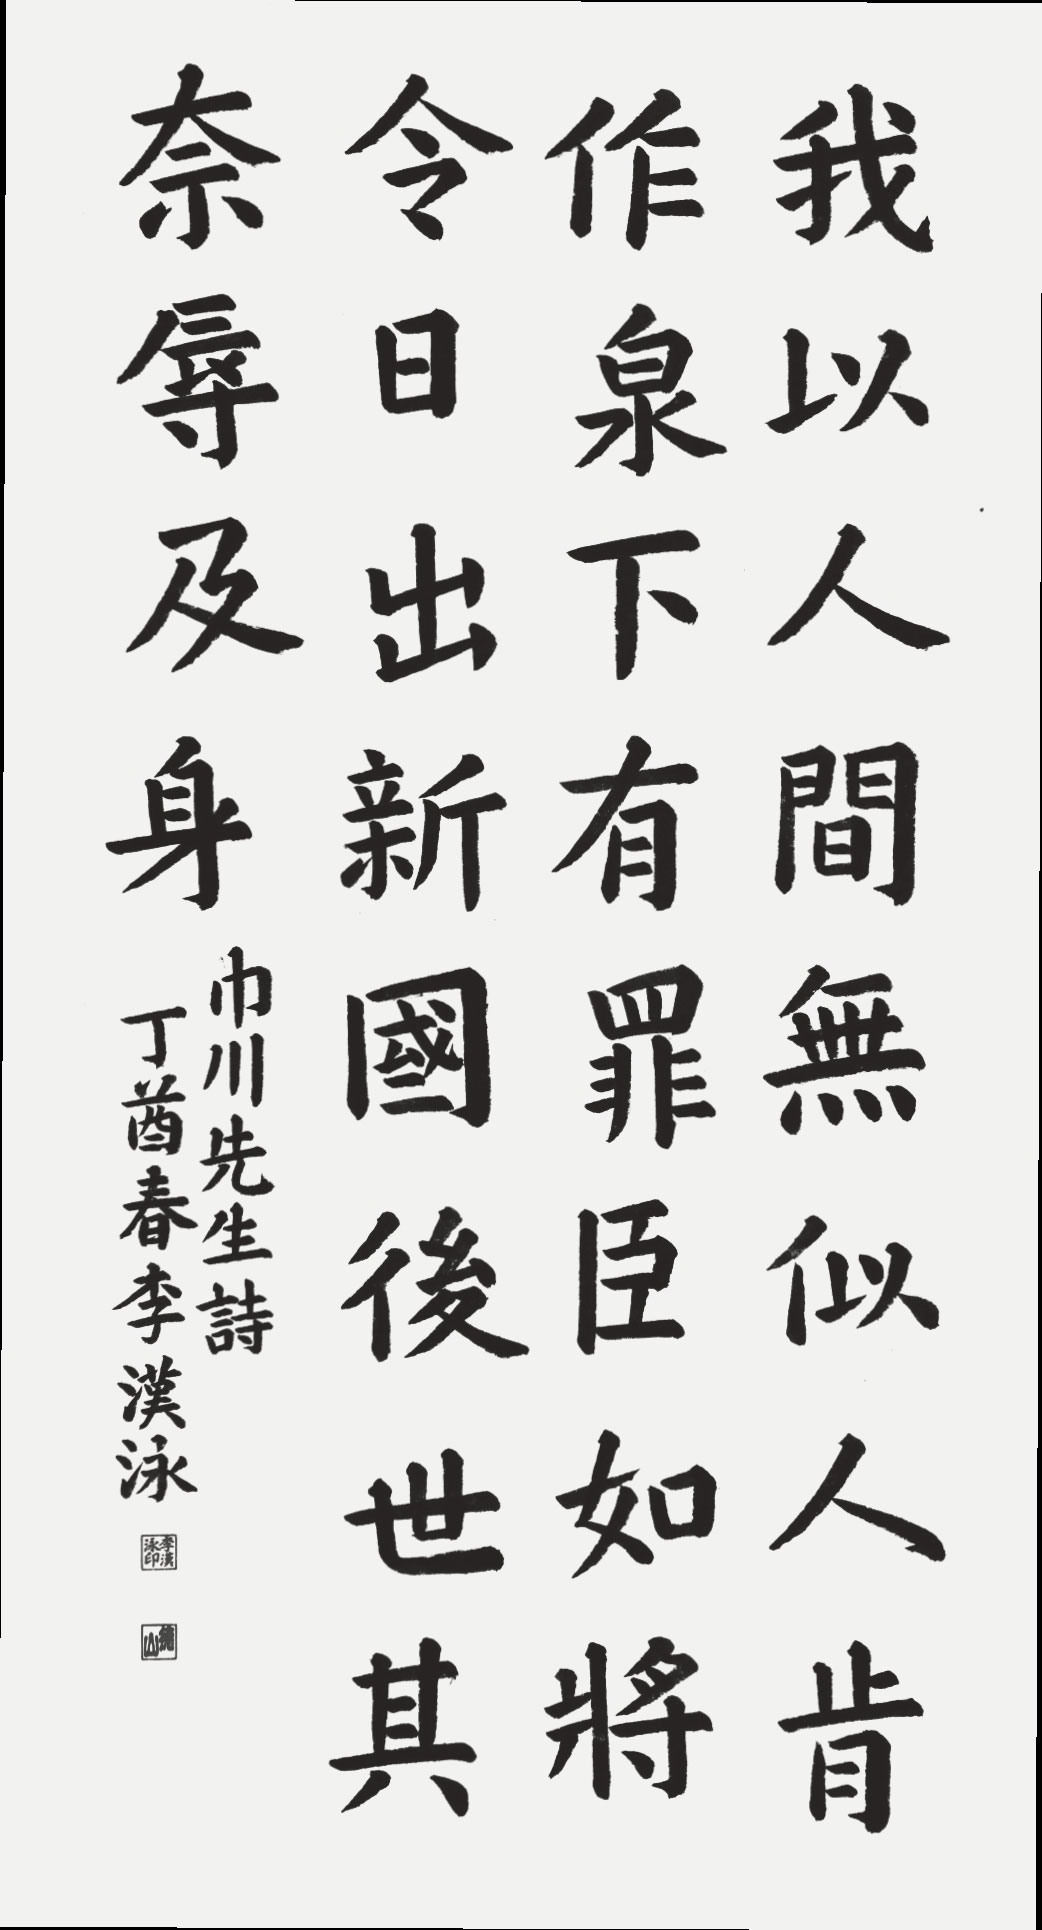 我以人間無似人肯
作泉下有罪臣如將
令日出新國後世其
奈辱及身
巾川先生詩
丁酋春李漢泳
李漢泳印